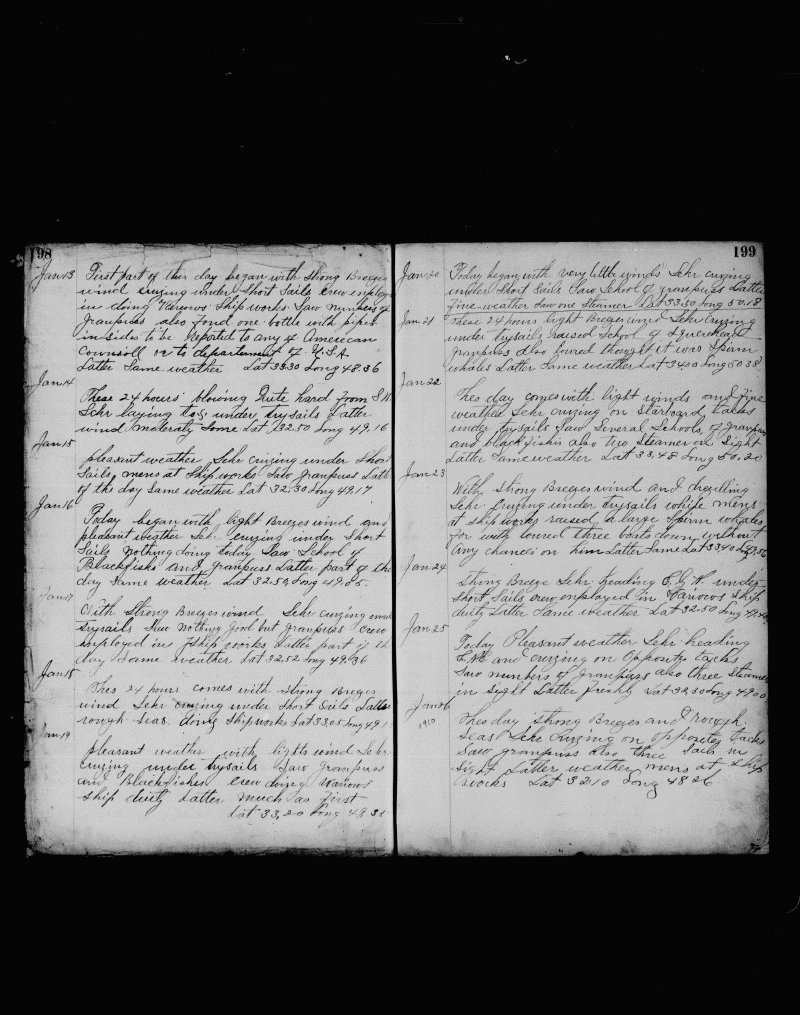 198
Jan 13 First part of this day began with strong Breeges
wind cruzing under Short Sails Crew employ
in doing Various Ship works Saw numbers of
Granpuss also fond one bottle with piper
in sides to be reported to any of Amerecan
Counsoll or to department of U.S.A.
Latter Same weather Lat 33.30 Long 48.36
Jan 14
These 24 hours blowing Quite hard from S.W.
Sehr laying to under trysails Latter
wind moderatly Some Lat 32.50 Long 49.16
Jan 15
pleasent weather Sehr cruzing under Short
Sails mens at Ship works Saw Granpuss Latt
of the day same weather Lat 32.30 Long 49.17
Jan 16
Today began with light Breeges wind and
pleasent weather Sehr Cruzing under Short
Sails nothing doing today Saw School of
Blackfishs and granpuss Latter part of the
day Same weather Lat 32.52 Long 49.85.
Jan 17
With Strong Breeges wind Sehr cruzing und
trysails Saw nothing good but granpuss Crew
employed in Ship works Latter part of th
day Same weather Lat 32.52 Long 49.36
Jan 18
Thes 24 hours comes with strong Breges
wind Sehr cruzing under Short Sails Latter
rough seas doing Shipworks Lat 33.05 Long 49.1
Jan 19
pleasant weather with lights wind Sehr
Cruzing under trysails Saw granpuss
and Blackfishes Crew doing Various
Ship duty Latter much as first
Lat 33,20 Long 48.38
199
Jan 20 Today began with very little winds Sehr cruzing
under Short Sails Saw School of granpuss Latter
Fine weather Saw one Steamer Lat 33.50 Long 50.18
Jan 21 These 24 hours light Breges wind Sehr Cruzing
under trysails raised School of Squerehead
granpuss also lowred thought it was Spirm
whales Latter Same weather Lat 34.00 Long 50 38
Jan 22
Thes day comes with light winds and Fine
weather Sehr cruzing on Starboard tacks
under trysails Saw Several Schools of granpuss
and blackfishes also two Steamer in Sight
Latter Same weather Lat 33,48 Long 50.20
Jan 23
With Strong Breeges wind and
Sehr Cruzing under trysails while mens
at ship works raised a large Spirm whales
for with lowred three boats down without
any chances on him Latter Same Lat 33,40
Jan 24
Strong Breege Sehr heading under
Short Sails crew employed in Various Ship
duty Latter Same weather Lat 32.50 Long
Jan 25
Today Pleasant weather Sehr heading
and cruzing on Opposity tacks
Saw numbers of Granpuss also three Steamer
in Sight Latter freshly Lat 32.30 Long 49.00
Jan 26
1910 Thes day strong Breges and rough
Seas Sehr Cruzing on opposites tacks
Saw granpuss also three Sails in
Sight Latter weather mens at Ship
works Lat 32.10 Long 48 26